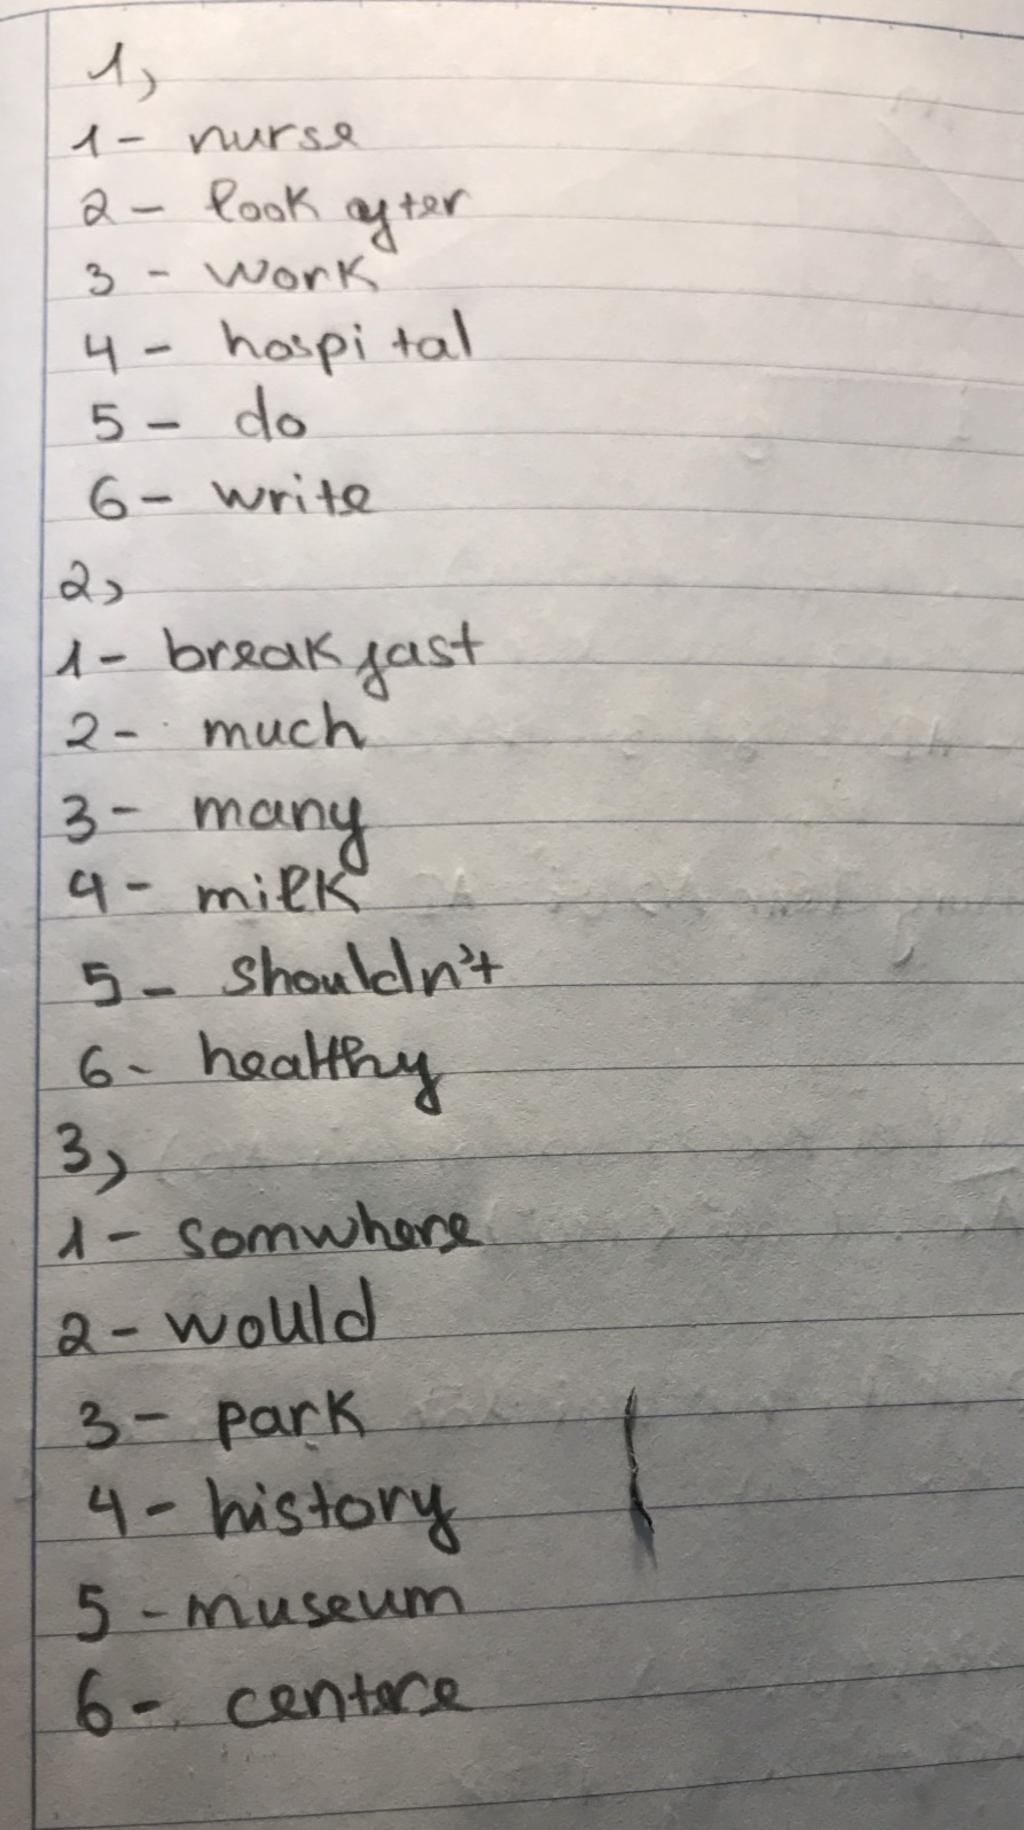 1,
1- nurse
2- look after
3- work
4- hospital
5- do
6- write
2,
1- breakfast
2- much
3- many
4- milk
5- shouldn't
6- healthy
3,
1- somwhere
2- would
3- park
4- history
5- museum
6- centere